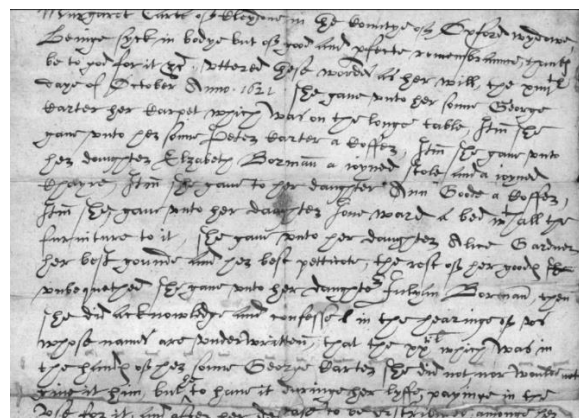 Margaret Carter of in the Countye of Oxford wydowe
Beinge syck in bodye but of good and p'fecte remembrannce, thanks
be to god for it &c, uttered these wordes as her will, the
daye of October Anno. 1621 She gave unto her sonne George
Karter her karpet which was on the longe table, Itm she
gave unto her sonne Peter Karter a koffer, Itm she gave unto
her daughter Elzabeth Borman a ioyned stole and a ioyned
Chayre Itm she gave to her daughter Ann Gode a koffer,
Itm she gave unto her daughter Jone ward a bed wth all the
furniture to it, She gave unto her daughter Alice Gardner
her best gounde and her best petticote, the rest of her goods
unbequethed she gave unto her daughter Borman, then
she did acknowledge and confesse in the hearinge of us
whose names are underwritten, that the xxl which was in
the hands of her sonne George Karter she did not nor would not
give it him but to have it duringe her lyfe payinge in the
use for it, and after her to be distributed amonge her